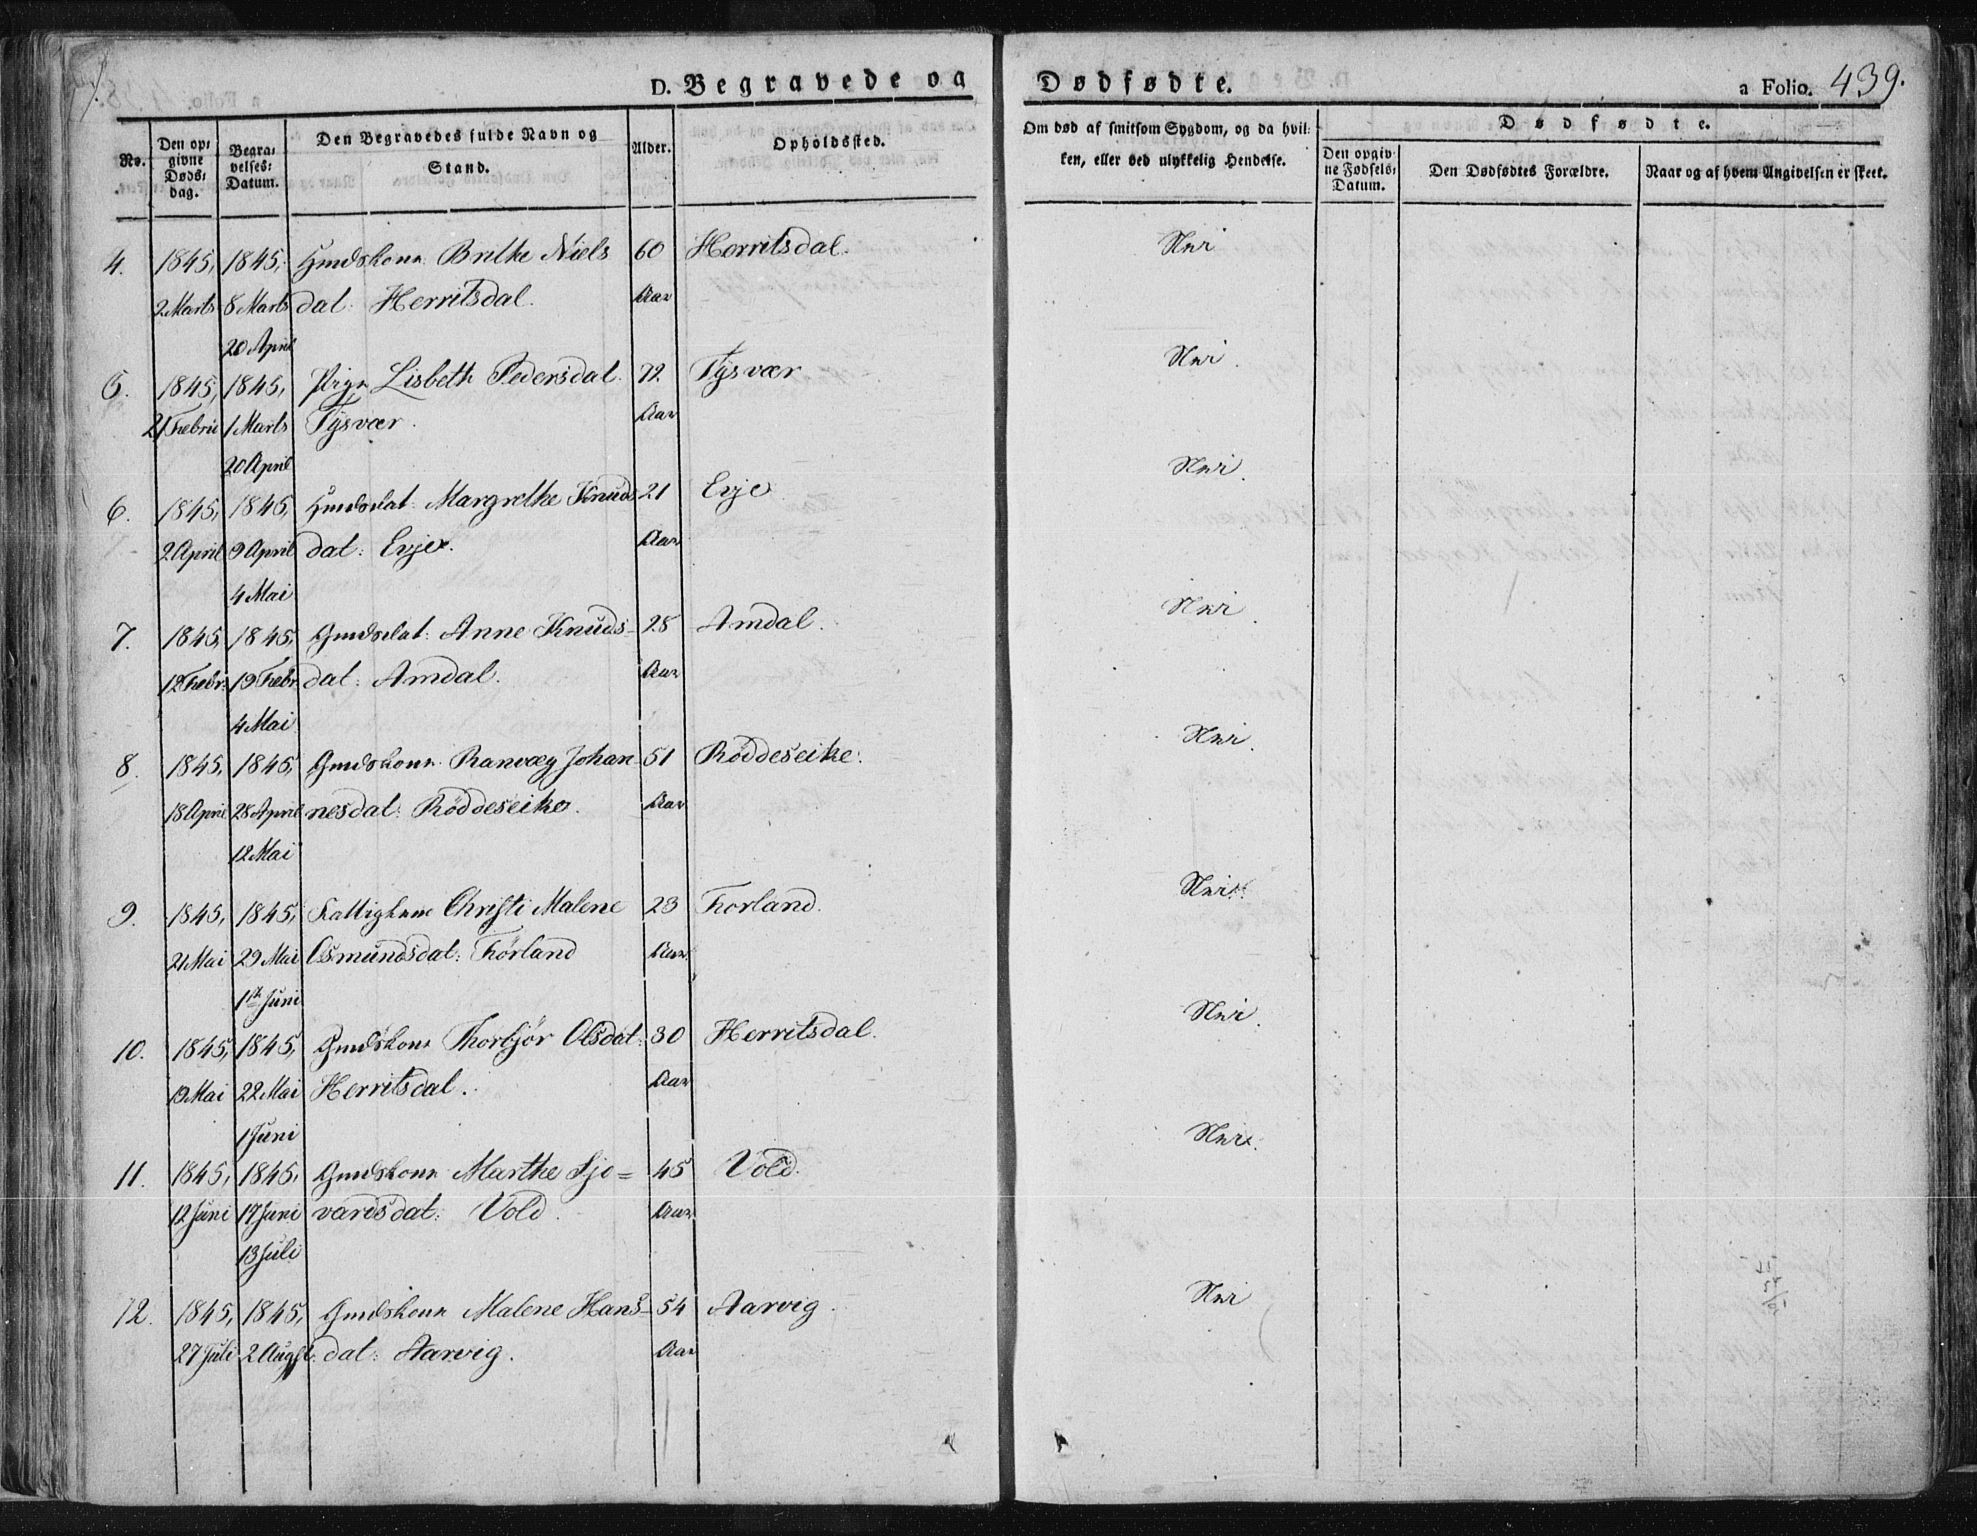 D. Begravede og Dødfødte. a Folio. 439.
No.
Den op=
givne
Døds=
dag.
Begra=
velses=
Datum.
Den Begravedes fulde Navn og
Stand.
Alder.
Opholdssted.
Om død af smitsom Sygdom, og da hvil=
ken, eller ved ulykkelig Hendelse.
Dødfødte.
Den opgiv=
ne Fødsels=
Datum.
Den Dødfødtes Forældre.
Naar og af hvem Angivelsen er skeet.
4. 1845, 1845, Gmdskone Brithe Niels 60 Herritsdal. Nei
2 Marts 8 Marts dat: Herritsdal. Aar
20 April
5. 1845, 1845, Lisbeth Pedersdat. 72 Tysvær Nei.
21 Febru 1 Marts Tysvær. Aar
20 April
6. 1845, 1845, Gmdsdat: Margrethe Knuds 21 Evje Nei.
2 April 9 April dat: Evje. Aar
4 Mai
7. 1845, 1845, Gmdsdat: Anne Knuds- 28 Amdal. Nei.
12 Febr. 19 Febr. dat: Amdal. Aar
4 Mai
8. 1845, 1845, Gmdskone Ranvæg Johan- 51 Røddeseike. Nei.
18 April 28 April nesdat: Røddeseike. Aar
12 Mai
9. 1845, 1845, Christi Malene 23 Førland. Nei.
21 Mai 29 Mai Osmundsdat: Førland Aar
1ste Juni
10. 1845, 1845, Gmdskone Thorbjør Olsdat: 30 Herritsdal. Nei.
19 Mai 22 Mai Herritsdal. Aar
1 Juni
11. 1845, 1845, Gmdskone Marthe Sjo= 45 Vold. Nei.
12 Juni 17 Juni vardsdat: Vold. Aar
13 Juli
12. 1845, 1845, Gmdskone Malene Hans- 54 Aarvig. Nei
27 Juli 2 Augst. dat: Aarvig. Aar